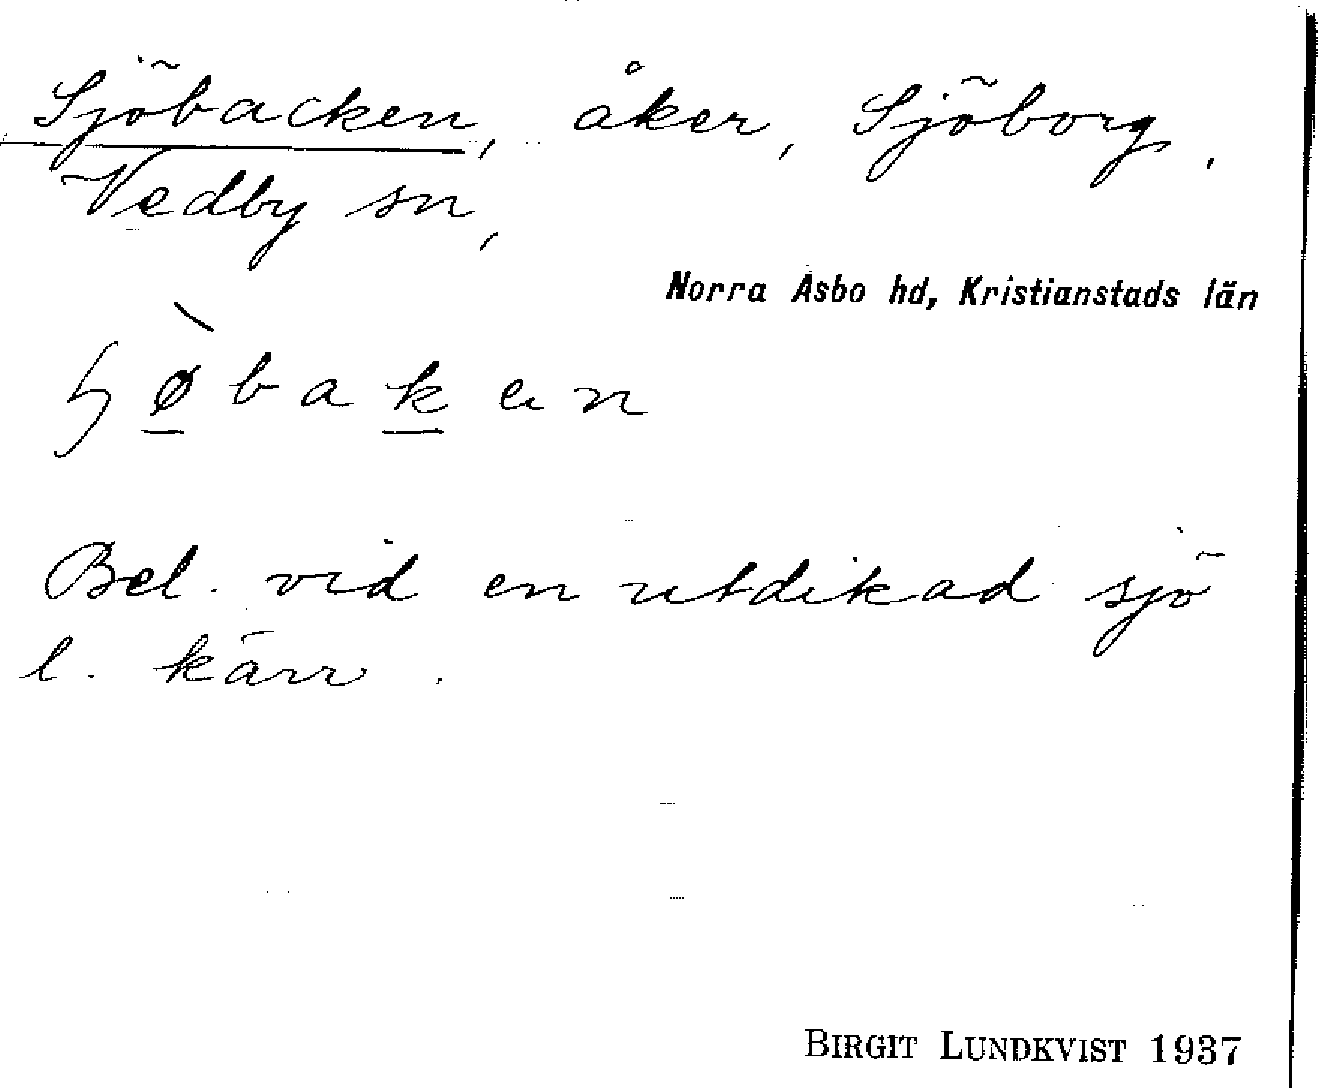 Sjöbacken, åker, Sjöborg,
Vedby sn,
Norra Åsbo hd, Kristianstads län
Bel. vid en utdikad sjö
l. kärr.
BIRGIT LUNDKVIST 1937